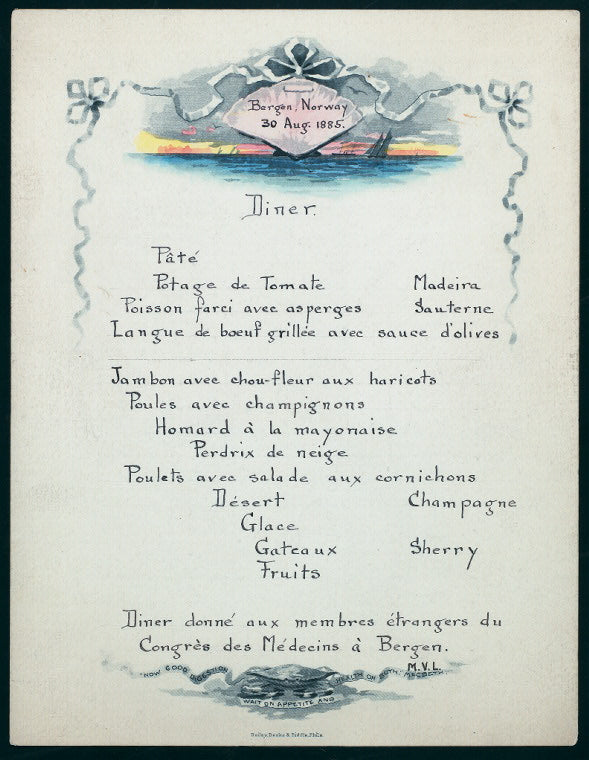 Bergen, Norway
30 Aug. 1885.
Diner.
Pâté
Potage de Tomate Madeira
Poisson farci avec asperges Sauterne
Langue de bœuf grillée avec sauce d'olives
Jambon avec chou-fleur aux haricots
Poules avec champignons
Homard à la mayonaise
Perdrix de neige
Poulets avec salade aux cornichons
Désert Champagne
Glace
Gateaux Sherry
Fruits
Diner donné aux membres étrangers du
Congrès des Médecins à Bergen.
M.V.L.
"NOW GOOD DIGESTION
WAIT ON APPETITE AND
HEALTH ON BOTH." MACBETH.
Bailey, Banks & Biddle, Phila.